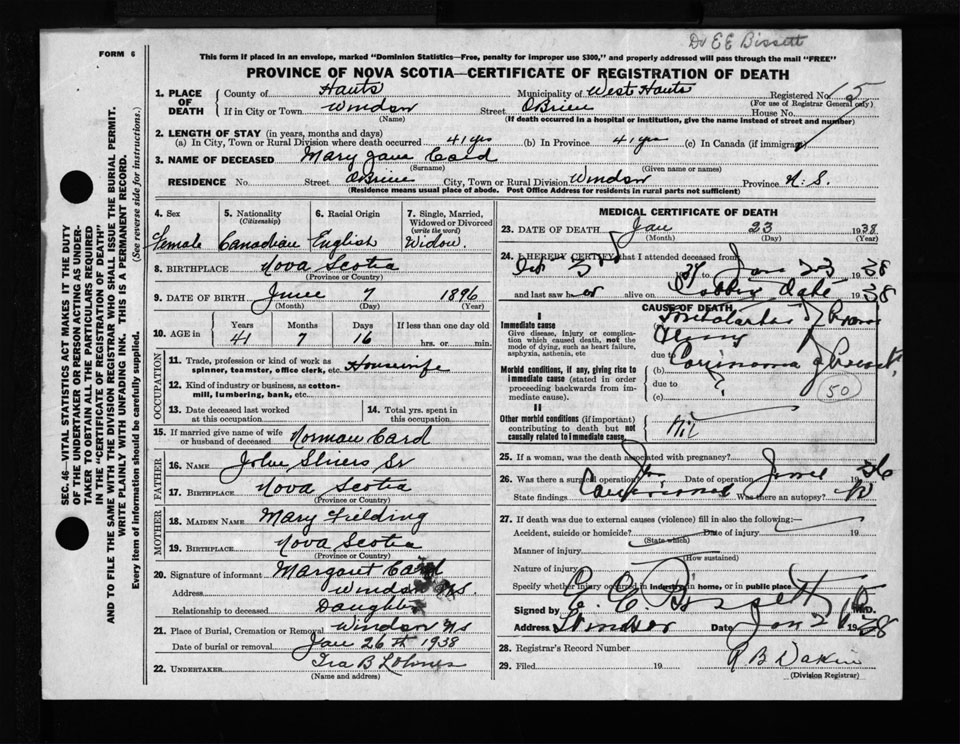 Dr E E Bissett
FORM 6
This form if placed in an envelope, marked "Dominion Statistics—Free, penalty for improper use $300," and properly addressed will pass through the mail "FREE"
PROVINCE OF NOVA SCOTIA—CERTIFICATE OF REGISTRATION OF DEATH
SEC. 46—VITAL STATISTICS ACT MAKES IT THE DUTY
OF THE UNDERTAKER OR PERSON ACTING AS UNDER-
TAKER TO OBTAIN ALL THE PARTICULARS REQUIRED
IN THE "CERTIFICATE OF REGISTRATION OF DEATH"
AND TO FILE THE SAME WITH THE DIVISION REGISTRAR WHO SHALL ISSUE THE BURIAL PERMIT.
WRITE PLAINLY WITH UNFADING INK. THIS IS A PERMANENT RECORD.
Every item of information should be carefully supplied. (See reverse side for instructions.)
1. PLACE OF DEATH County of Hants Municipality of West Hants Registered No. 15
(For use of Registrar General only)
If in City or Town Windsor Street OBrien House No.
(Name) (If death occurred in a hospital or institution, give the name instead of street and number)
2. LENGTH OF STAY (in years, months and days)
(a) In City, Town or Rural Division where death occurred 41 yrs (b) In Province 41 yrs (c) In Canada (if immigrant)
3. NAME OF DECEASED Mary Jane Card
(Surname) (Given name or names)
RESIDENCE No. Street OBrien City, Town or Rural Division Windsor Province N.S.
(Residence means usual place of abode. Post Office Address for residents in rural parts not sufficient)
4. Sex 5. Nationality (Citizenship) 6. Racial Origin 7. Single, Married, Widowed or Divorced (write the word)
Female Canadian English Widow.
8. BIRTHPLACE Nova Scotia
(Province or Country)
9. DATE OF BIRTH June 7 1896
(Month) (Day) (Year)
10. AGE in Years Months Days If less than one day old
41 7 16 hrs. or min.
OCCUPATION
11. Trade, profession or kind of work as spinner, teamster, office clerk, etc. Housewife
12. Kind of industry or business, as cotton-mill, lumbering, bank, etc.
13. Date deceased last worked at this occupation
14. Total yrs. spent in this occupation
15. If married give name of wife or husband of deceased Norman Card
FATHER
16. NAME John Sr
17. BIRTHPLACE Nova Scotia
(Province or Country)
MOTHER
18. MAIDEN NAME Mary Fielding
19. BIRTHPLACE Nova Scotia
(Province or Country)
20. Signature of informant Margaret Card
Address Windsor N.S.
Relationship to deceased Daughter
21. Place of Burial, Cremation or Removal Windsor NS
Date of burial or removal Jan 26th 1938
22. UNDERTAKER Ira B Lohnes
(Name and address)
MEDICAL CERTIFICATE OF DEATH
23. DATE OF DEATH Jan 23 1938
(Month) (Day) (Year)
24. I HEREBY CERTIFY that I attended deceased from
3rd 37 to Jan 23 1938
and last saw her alive on above Date 1938
CAUSE OF DEATH
I
Immediate cause
Give disease, injury or complication which caused death, not the mode of dying, such as heart failure, asphyxia, asthenia, etc
due to
Morbid conditions, if any, giving rise to immediate cause (stated in order proceeding backwards from immediate cause).
(b) Carcinoma of breast
50
due to
(c) ?
II
Other morbid conditions (if important) contributing to death but not causally related to immediate cause. Nil
25. If a woman, was the death associated with pregnancy?
26. Was there a surgical operation? Date of operation June 1936
State findings Carcinoma Was there an autopsy? No
27. If death was due to external causes (violence) fill in also the following:—
Accident, suicide or homicide? Date of injury 19
(State which)
Manner of injury
(How sustained)
Nature of injury
Specify whether injury occurred in industry, in home, or in public place
Signed by E. E. Bissett M.D.
Address Windsor Date Jan 26 1938
28. Registrar's Record Number
29. Filed 19 R B Dakin
(Division Registrar)